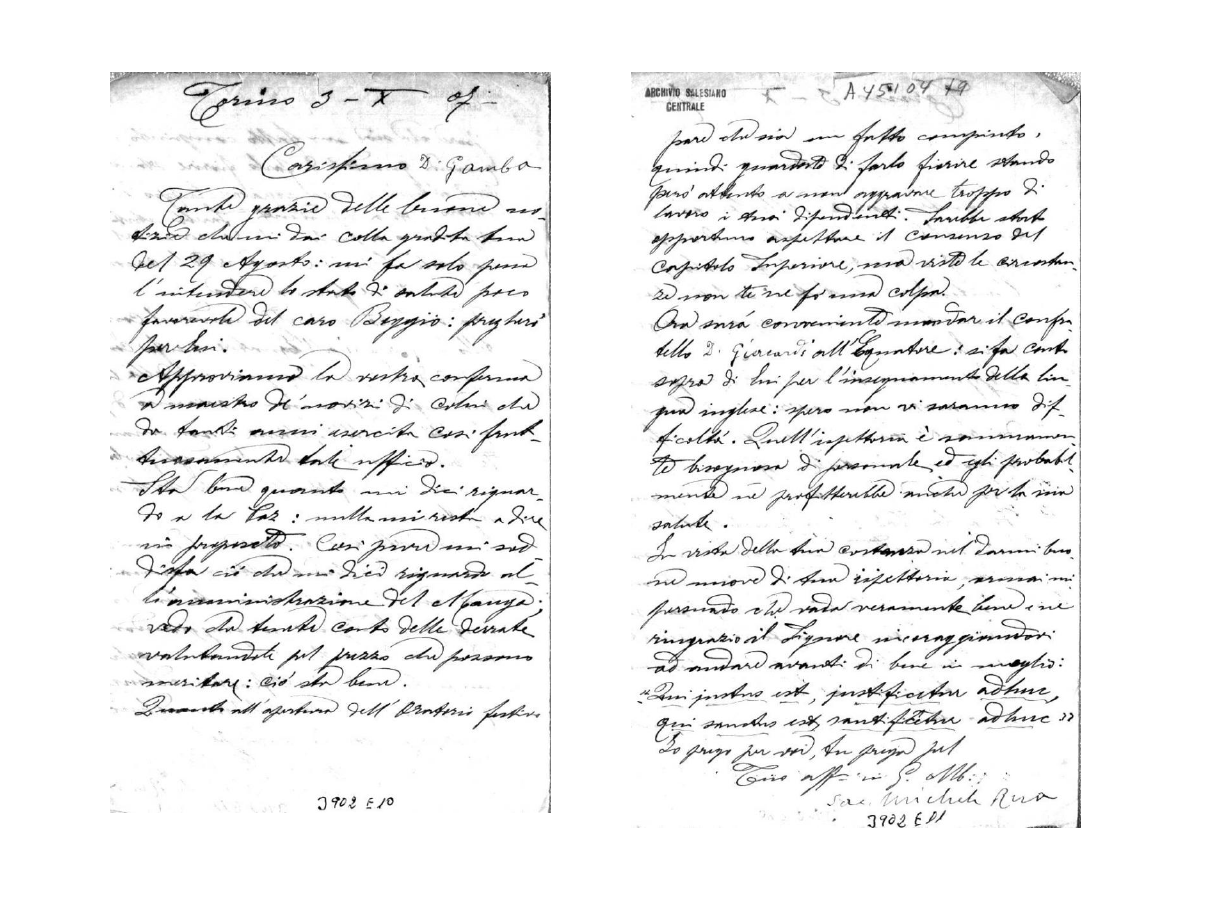 Torino 3 - X 07 -
Carissimo D. Gamba
Tante grazie delle buone no-
tizie che mi dai colla gradita tua
del 29 Agosto: mi fa solo pena
l'intendere lo stato di salute poco
favorevole del caro Beggio: pregherò
per lui.
Approviamo la vostra conferma
a maestro de' novizi di colui che
da tanti anni esercita così frut-
tuosamente tale ufficio.
Sta bene quanto mi dici riguar-
do a la Paz: nulla mi resta a dire
in proposito. Così pure mi sod-
disfa ciò che mi dici riguardo al-
l'amministrazione del Manga;
vedo che tenete conto delle derrate
valutandole pel prezzo che possono
meritare: ciò sta bene.
Quanto all'apertura dell'Oratorio festivo
3902 E10
ARCHIVIO SALESIANO
CENTRALE
A 4510479
pare che sia un fatto compiuto,
quindi guardate di farlo fiorire stando
però attento a non aggravare troppo di
lavoro i tuoi dipendenti. Sarebbe stato
opportuno aspettare il consenso del
Capitolo Superiore, ma viste le circostan-
ze non te ne fo una colpa.
Ora sarà conveniente mandar il confra-
tello D. Giaccardi all'Equatore: si fa conto
sopra di lui per l'insegnamento della lin-
gua inglese: spero non vi saranno dif-
ficoltà. Quell'ispettoria è sommamen-
te bisognosa di personale ed egli probabil-
mente ne profitterebbe anche per la sua
salute.
In vista della tua costanza nel darmi buo-
ne nuove di tua ispettoria, ormai mi
persuado che vada veramente bene e ne
ringrazio il Signore incoraggiandovi
ad andare avanti di bene in meglio:
"Qui justus est, justificetur adhuc,
qui sanctus est, santificetur adhuc"
Io prego per voi, tu prega pel
Tuo aff. in G. M.
Sac. Michele Rua
3902 E11